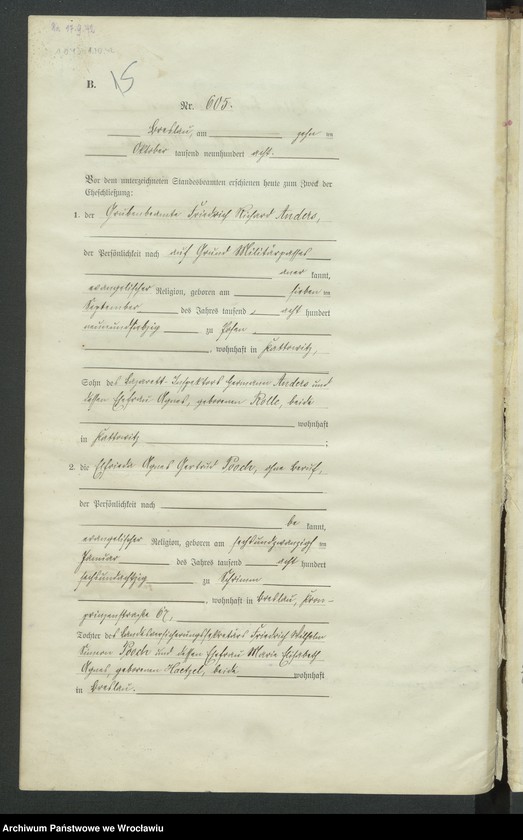 B.
15
Nr. 605.
Breslau, am zehn ten
Oktober tausend neunhundert acht.
Vor dem unterzeichneten Standesbeamten erschienen heute zum Zweck der
Eheschließung:
1. der Grubenbeamte Friedrich Richard Anders,
der Persönlichkeit nach auf Grund Militärpasses
aner kannt,
evangelischer Religion, geboren am sieben ten
September des Jahres tausend acht hundert
neunundsiebzig zu Posen
, wohnhaft in Kattowitz,
Sohn des Lazarett-Inspektors Hermann Anders und
dessen Ehefrau Agnes, geborenen Rolle, beide
wohnhaft
in Kattowitz ;
2. die Elfrieda Agnes Gertrud Poech, ohne Beruf,
der Persönlichkeit nach
be kannt,
evangelischer Religion, geboren am sechsundzwanzigsten
Januar des Jahres tausend acht hundert
sechsundachtzig zu Schrimm
, wohnhaft in Breslau, Kron-
prinzenstraße 67,
Tochter des Landesversicherungssekretärs Friedrich Wilhelm
Simon Poech und dessen Ehefrau Marie Elisabeth
Agnes, geborenen Haetzel, beide wohnhaft
in Breslau.
Archiwum Państwowe we Wrocławiu